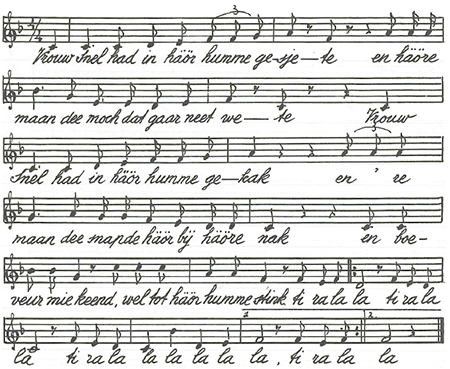 Vrouw Snel had in häör humme ge-sje-te en häöre
maan dee moch dat gaar neet we-te Vrouw
Snel had in häör humme ge-kak en 're
maan dee snapde häör bij häöre nak en boe-
veur mie keend, wel tot häör humme stink ti ra la la ti ra la
la ti ra la la la la la la, ti ra la la